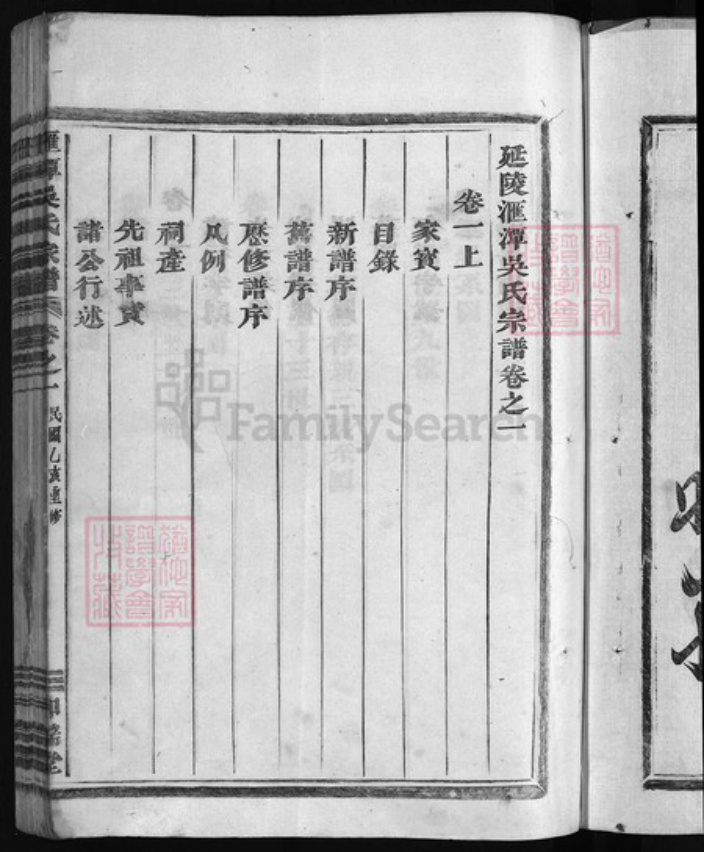 延陵滙潭吳氏宗譜卷之一
卷一上
家寶
目錄
新譜序
舊譜序
歷修譜序
凡例
祠產
先祖事實
諸公行述
滙潭吳氏宗譜 卷之一 民國乙亥重修
FamilySearch